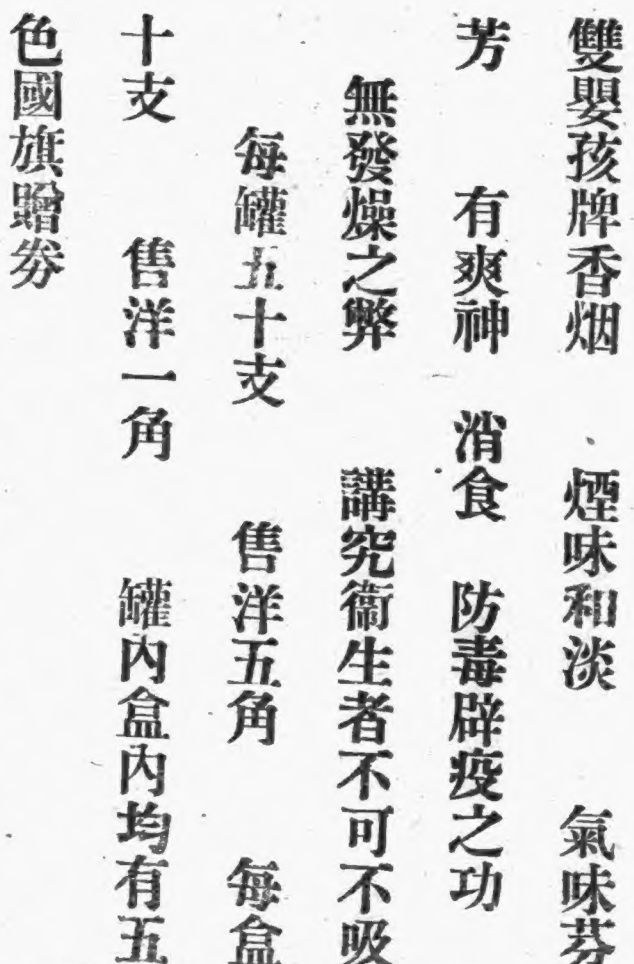 雙嬰孩牌香烟　煙味和淡　氣味芬
芳　有爽神　消食　防毒辟疫之功
無發燥之弊　講究衞生者不可不吸
每罐五十支　售洋五角　每盒
十支　售洋一角　罐內盒內均有五
色國旗贈券